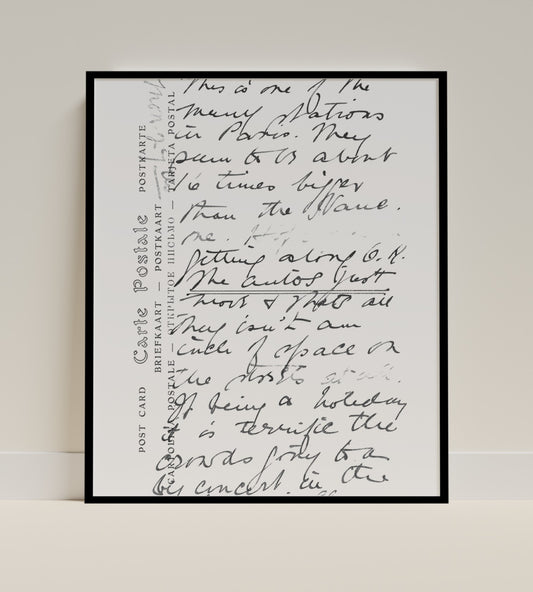 This is one of the
many stations
in Paris. They
seem to be about
16 times bigger
than the
one.
getting along O.K.
The autos just
all
they isn't an
inch of space on
the streets at all.
If being a holiday
is terrific the
crowds going to a
big concert in the
POST CARD Carte Postale POSTKARTE
BRIEFKAART — POSTKAART
CARTOLINA POSTALE — ОТКРЫТОЕ ПИСЬМО — TARJETA POSTAL